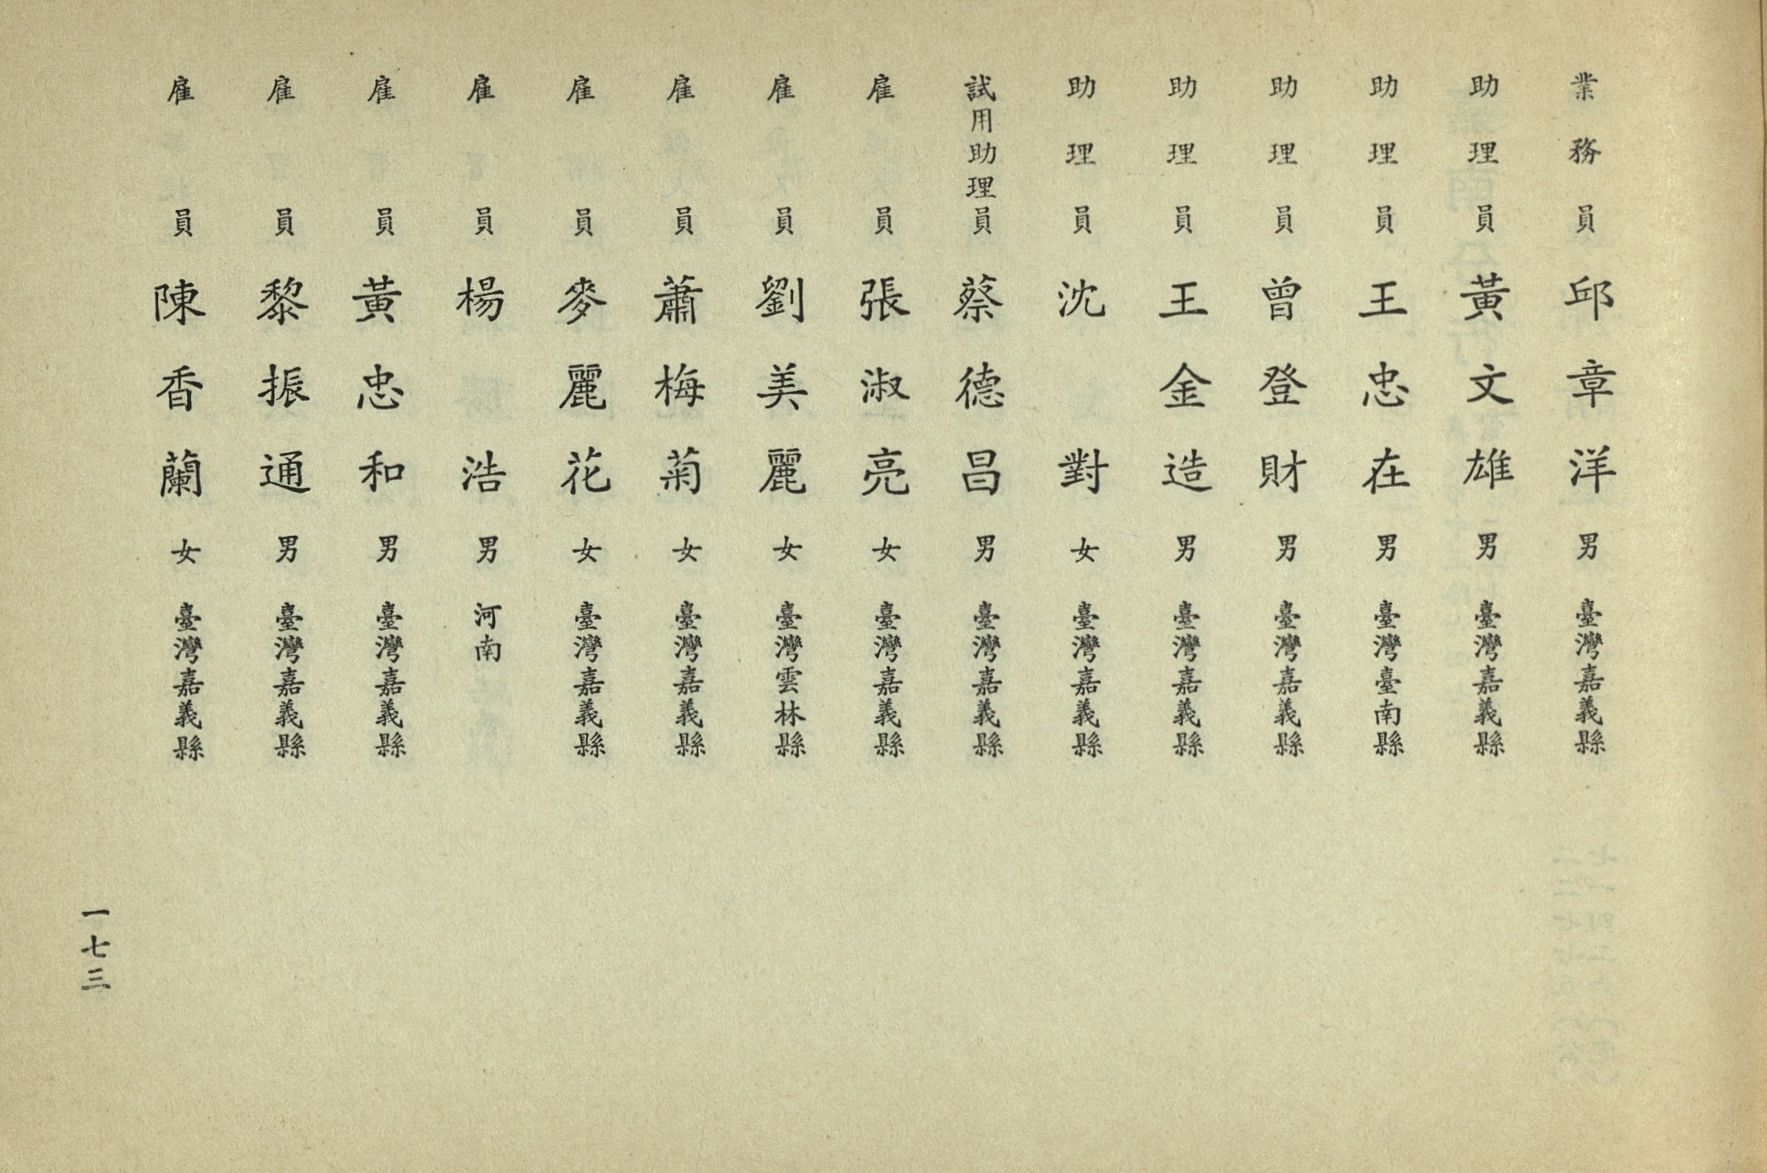 業務員 邱章洋 男 臺灣嘉義縣
助理員 黃文雄 男 臺灣嘉義縣
助理員 王忠在 男 臺灣臺南縣
助理員 曾登財 男 臺灣嘉義縣
助理員 王金造 男 臺灣嘉義縣
助理員 沈對 女 臺灣嘉義縣
試用助理員 蔡德昌 男 臺灣嘉義縣
雇員 張淑亮 女 臺灣嘉義縣
雇員 劉美麗 女 臺灣雲林縣
雇員 蕭梅菊 女 臺灣嘉義縣
雇員 麥麗花 女 臺灣嘉義縣
雇員 楊浩 男 河南
雇員 黃忠和 男 臺灣嘉義縣
雇員 黎振通 男 臺灣嘉義縣
雇員 陳香蘭 女 臺灣嘉義縣
一七三